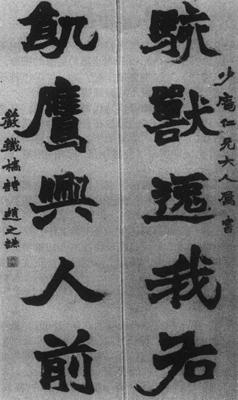 少鷹仁兄大人屬書
駭獸逸我右
飢鷹興人前
嚴鐵橋詩 趙之謙